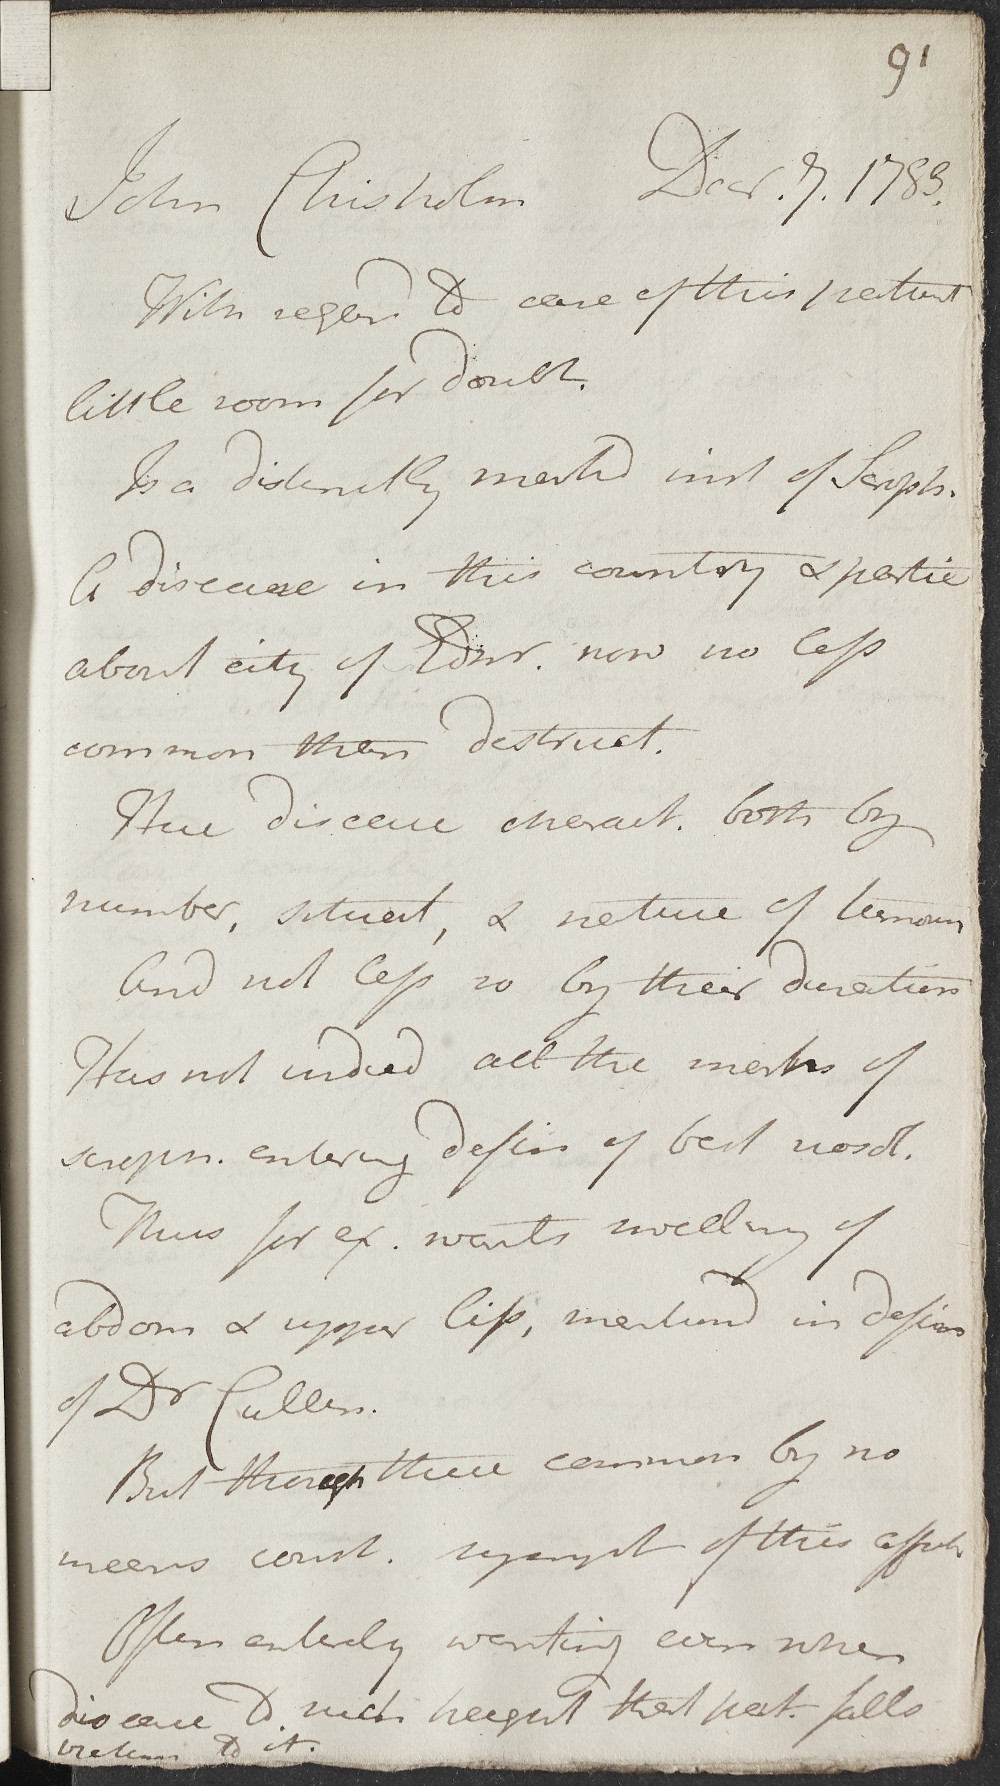 91
John Chisholm Decr. 7. 1783.
With regard to case of this patient
little room for doubt.
Is a distinctly marked inst of Scroph.
A disease in this country & partic
about city of Edinr. now no less
common than destruct.
Here disease charact. both by
number, situat, & nature of tumours
And not less so by their duration
Has not indeed all the marks of
scroph. entering defin of best nosol.
Thus for ex. wants swelling of
abdom & upper lip, mentiond in defin
of Dr Cullen.
But though these common by no
means const. sympt of this affect
Often entirely wanting even when
disease to such height that pat. falls
victim to it.